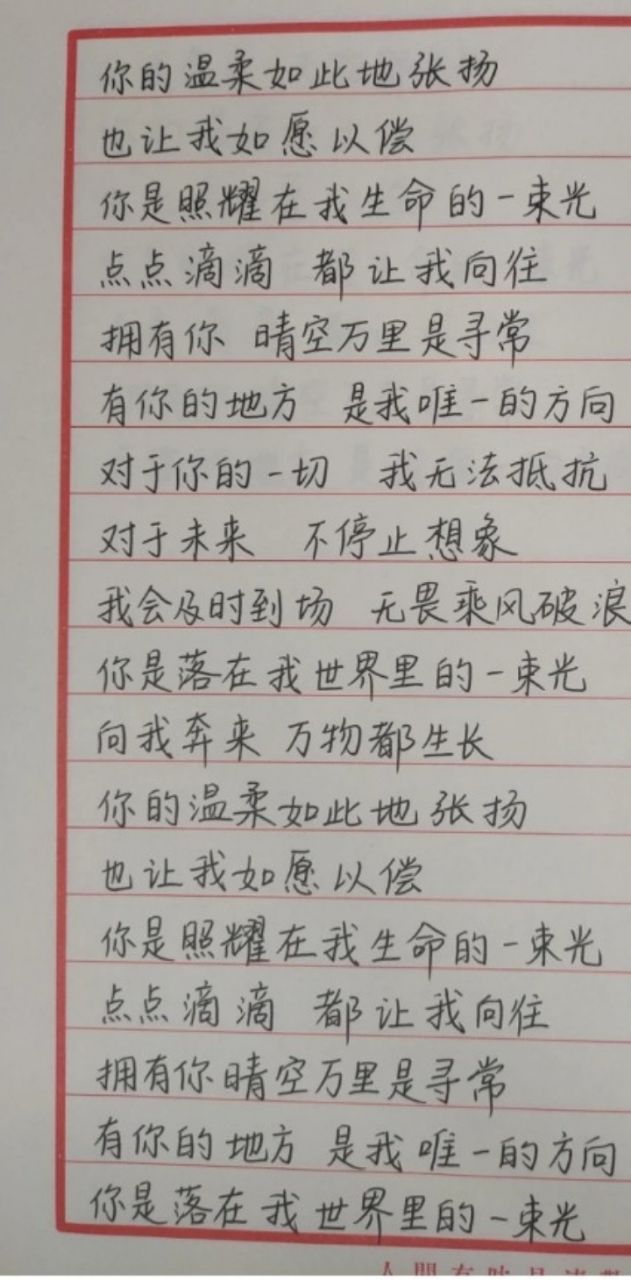 你的温柔如此地张扬
也让我如愿以偿
你是照耀在我生命的一束光
点点滴滴 都让我向往
拥有你 晴空万里是寻常
有你的地方 是我唯一的方向
对于你的一切 我无法抵抗
对于未来 不停止想象
我会及时到场 无畏乘风破浪
你是落在我世界里的一束光
向我奔来 万物都生长
你的温柔如此地张扬
也让我如愿以偿
你是照耀在我生命的一束光
点点滴滴 都让我向往
拥有你晴空万里是寻常
有你的地方 是我唯一的方向
你是落在我世界里的一束光